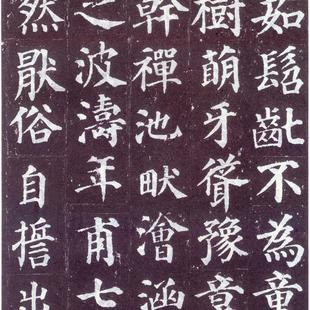 茹髫齔不為童
樹萌牙聳豫章
幹禪池畎澮涵
之波濤年甫七
然厭俗自誓出